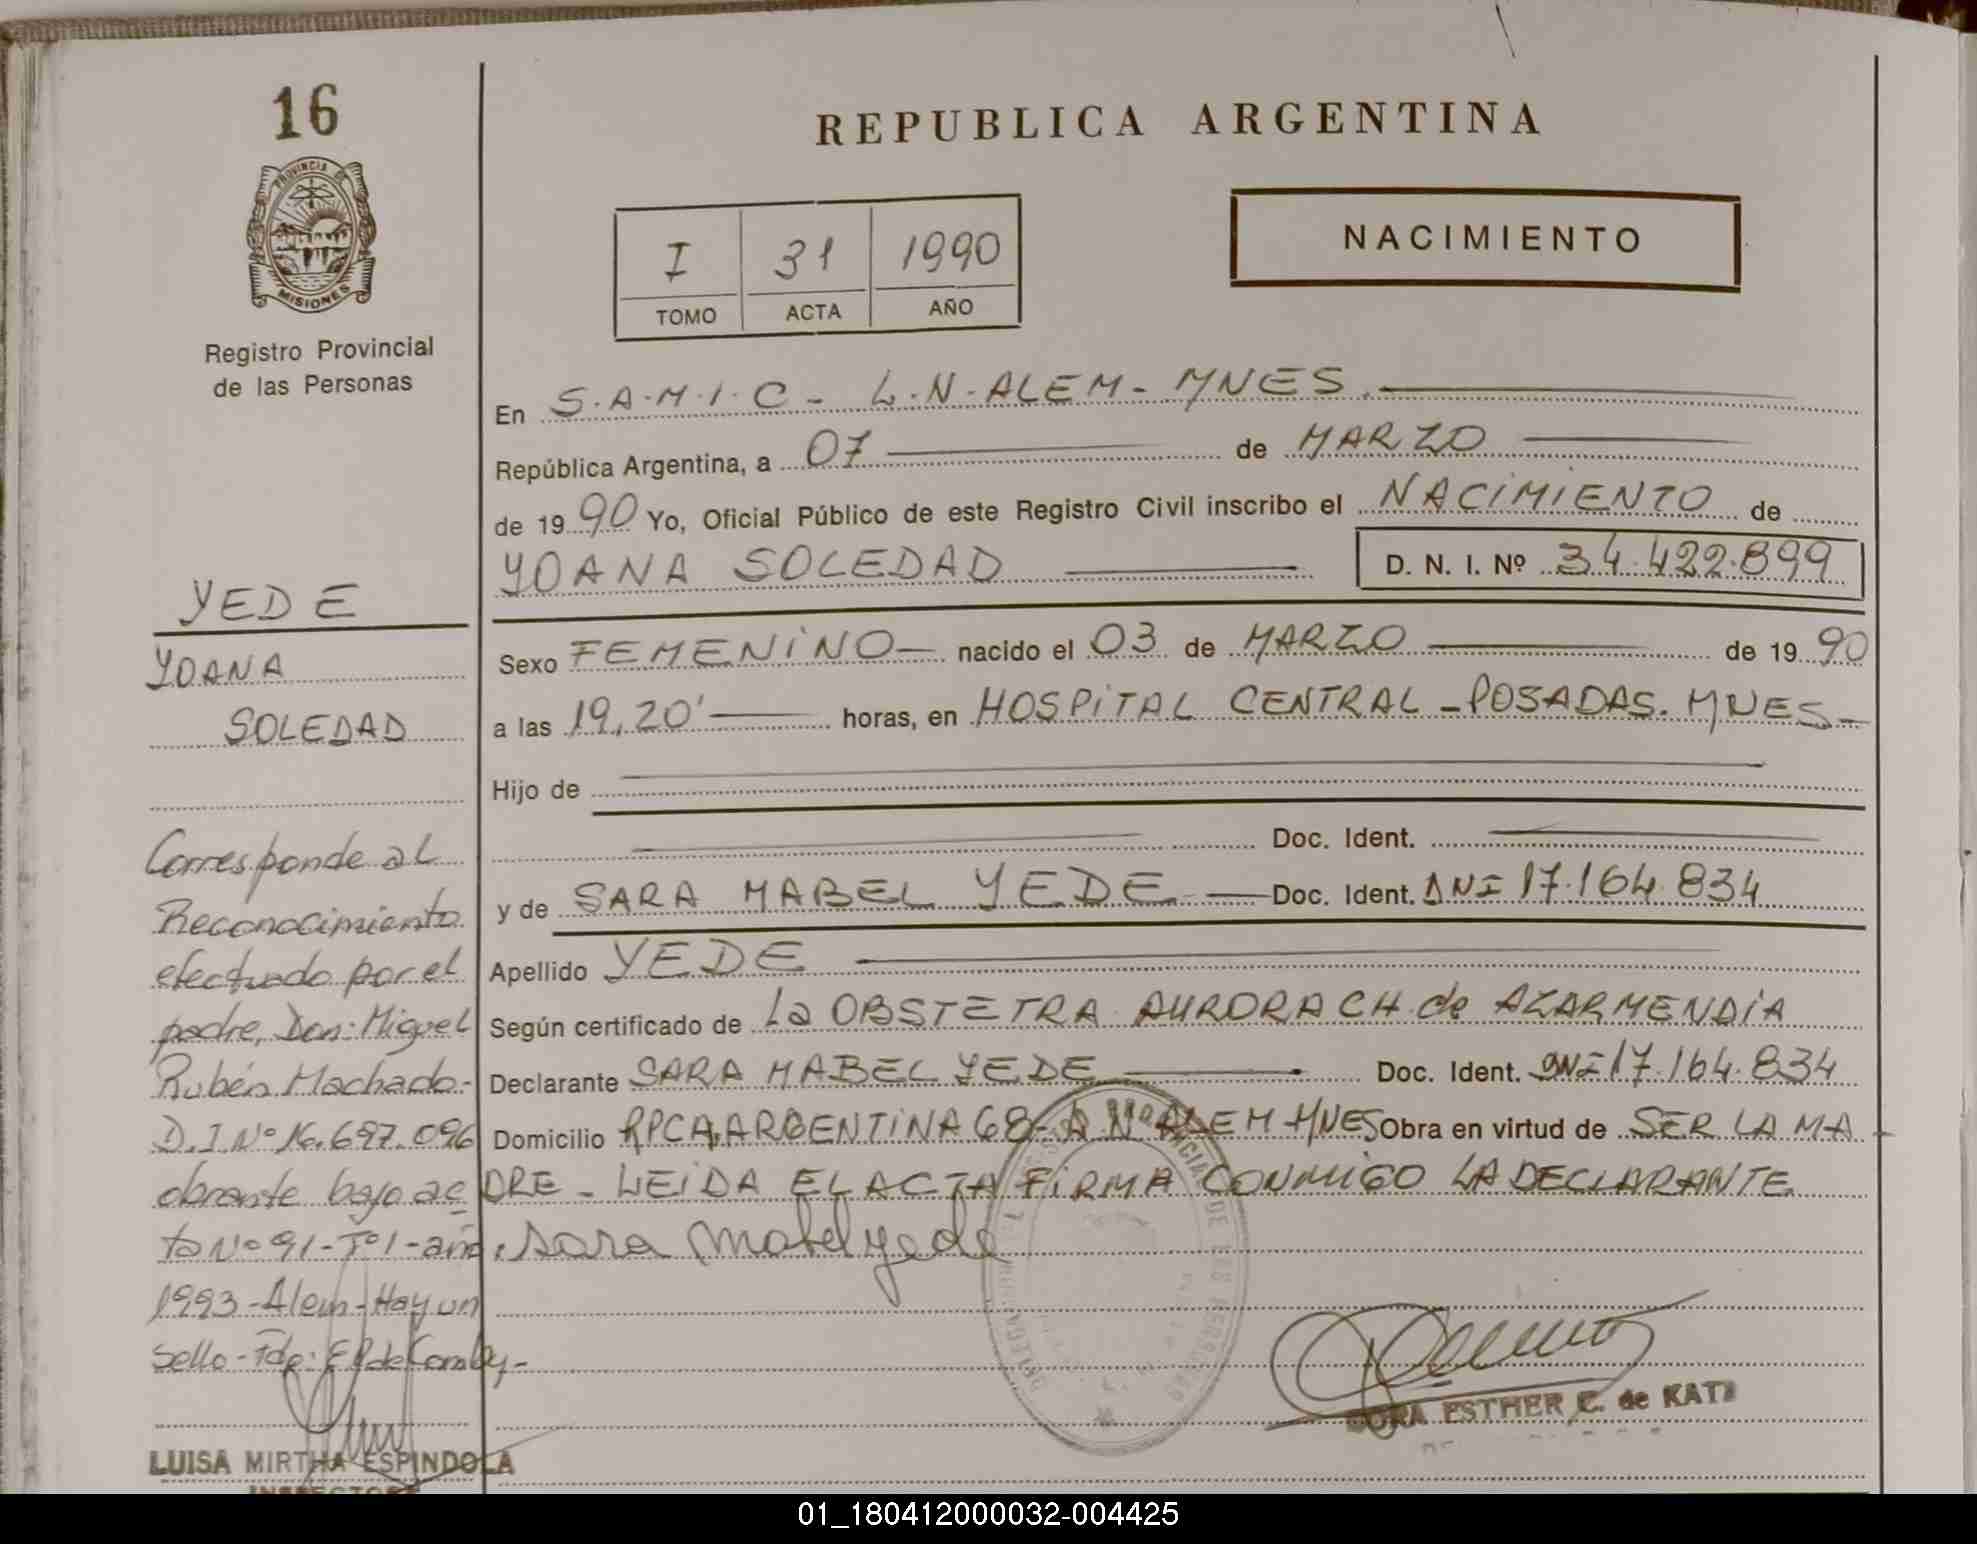 16
PROVINCIA DE
MISIONES
Registro Provincial
de las Personas
REPUBLICA ARGENTINA
I 31 1990
TOMO ACTA AÑO
NACIMIENTO
En S.A.M.I.C - L.N.ALEM - MNES.
República Argentina, a 07 de MARZO
de 1990 Yo, Oficial Público de este Registro Civil inscribo el NACIMIENTO de
YOANA SOLEDAD D. N. I. Nº 34.422.899
Sexo FEMENINO nacido el 03 de MARZO de 1990
a las 19,20' horas, en HOSPITAL CENTRAL - POSADAS. MNES -
Hijo de
Doc. Ident.
y de SARA MABEL YEDE Doc. Ident. DNI 17.164.834
Apellido YEDE
Según certificado de La OBSTETRA AURORA CH. de AZARMENDIA
Declarante SARA MABEL YEDE Doc. Ident. DNI 17.164.834
Domicilio RPCA, ARGENTINA 68 - ALEM MNES Obra en virtud de SER LA MA
DRE - LEIDA EL ACTA FIRMA CONMIGO LA DECLARANTE
Sara Mabel yede
DORA ESTHER C. de KATZ
YEDE
YOANA
SOLEDAD
Corresponde al
Reconocimiento
efectuado por el
padre, Don: Miguel
Rubén Machado -
D.I. Nº 16.697.096
obrante bajo ac
ta Nº 91 - Tº I - año
1993 - Alem - Hay un
sello - Fdo:
LUISA MIRTHA ESPINDOLA
INSPECTORA
01_180412000032-004425